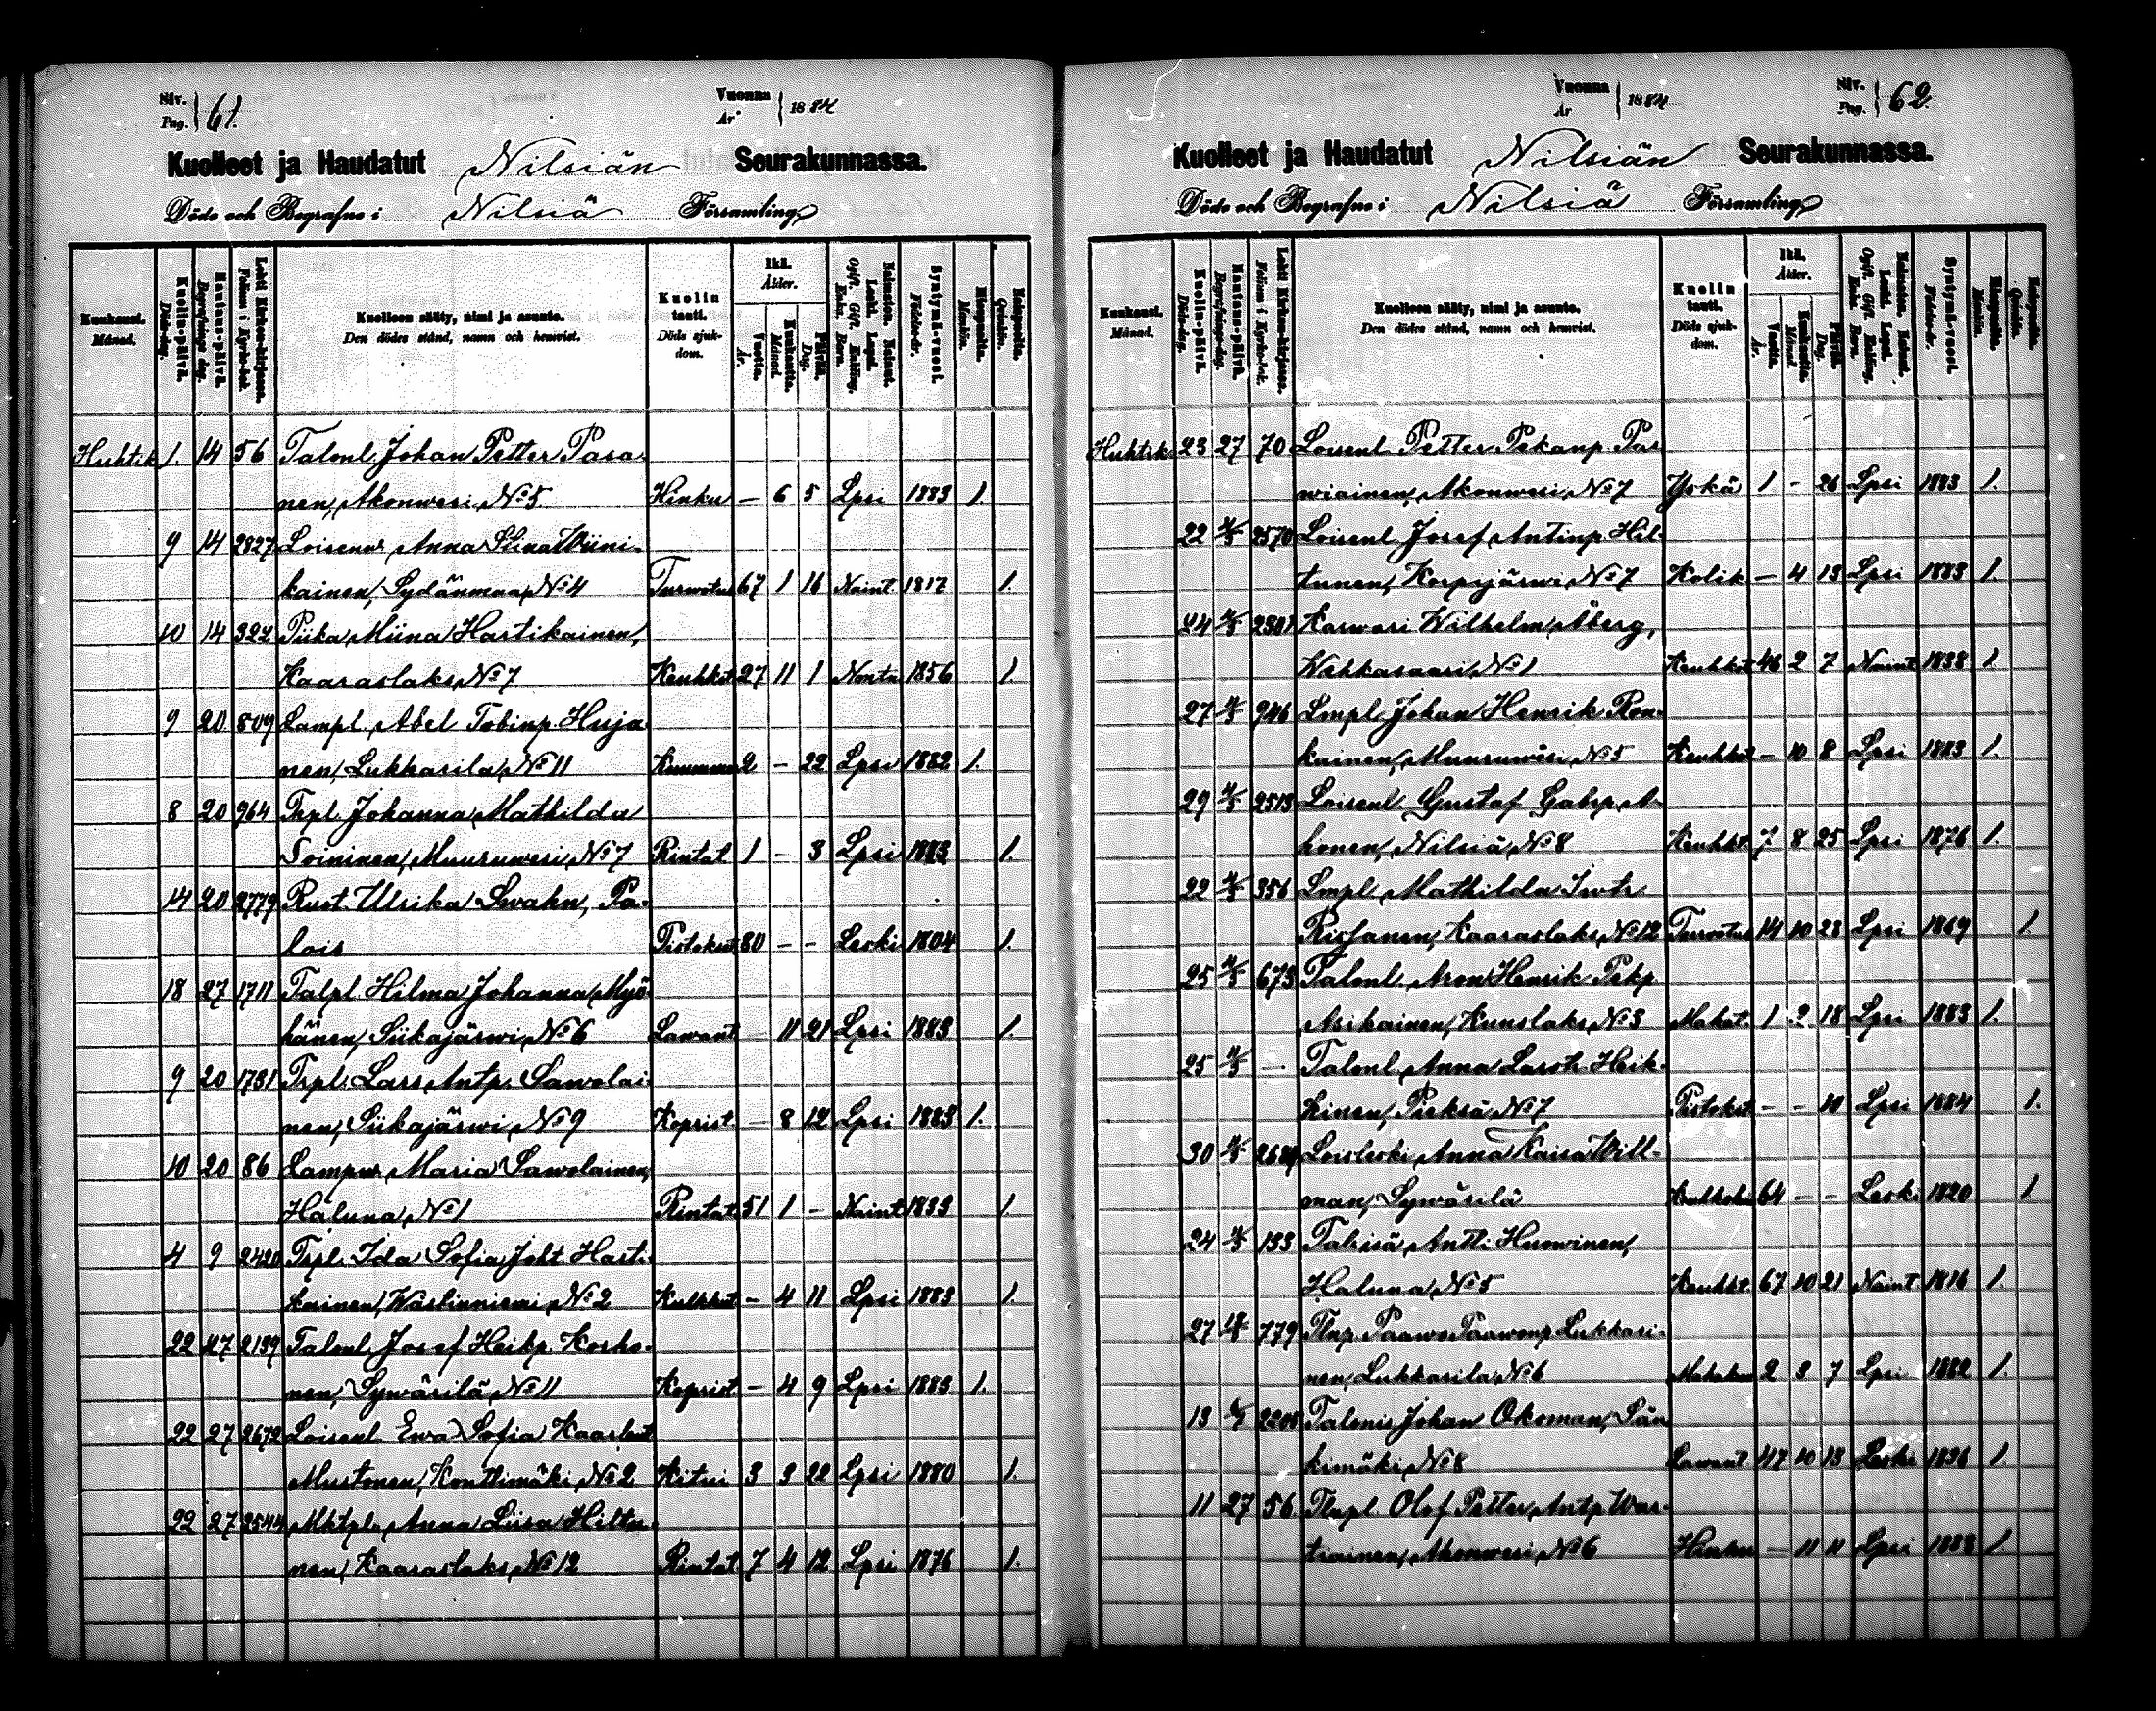 Siv. Pag. 61.
Vuonna År 1884
Kuolleet ja Haudatut Nilsiän Seurakunnassa.
Döde och Begrafne i Nilsiä Församling
Kuukausi. Månad.
Kuolin-päivä. Döds-dag.
Hautaus-päivä. Begrafnings-dag.
Lehti Kirkon-kirjassa. Folium i Kyrko-bok.
Kuolleen sääty, nimi ja asunto. Den dödes stånd, namn och hemvist.
Kuolin tauti. Döds sjukdom.
Ikä. Ålder.
Vuotta. År.
Kuukautta. Månad.
Päivää. Dag.
Naimaton. Nainut. Leski. Lapsi. Ogift. Gift. Enkling. Enka. Barn.
Syntymä-vuosi. Födelse-år.
Miespuolta. Mankön.
Vaimopuolta. Qvinkön.
Huhtik 1. 14 56 Talonl. Johan Petter Pasa-
nen, Akonwesi, No 5 Hinku — 6 5 Lpsi 1883 1.
9 14 2827 Loisenw Anna Stina Wiini-
kainen, Sydänmaa, No 4 Turwotus 67 1 16 Naint 1817 1.
10 14 327 Piika Miina Hartikainen,
Kaaraslaks, No 7 Keuhkot 27 11 1 Nmtn 1856 1.
9 20 809 Lampl. Abel Tobinp. Huja-
nen, Lukkarila, No 11 Kuumma 2 — 22 Lpsi 1882 1.
8 20 964 Trpl. Johanna Mathilda
Soininen, Muuruwesi, No 7 Rintat 1 — 3 Lpsi 1883 1.
14 20 2779 Rust. Ulrika Swahn, Pa-
lois Pistokset 80 — — Leski 1804 1.
18 27 1711 Talpl. Hilma Johanna Myö-
hänen, Siikajärwi, No 6 Lawant — 11 21 Lpsi 1883 1.
9 20 1731 Trpl. Lars Antp. Sawolai-
nen, Siikajärwi, No 9 Koprist. — 8 12 Lpsi 1883 1.
10 20 86 Lampw. Maria Sawolainen,
Haluna, No 1 Rintat 51 1 — Naint 1833 1.
4 9 2420 Trpl. Ida Sofia Joht Harti-
kainen, Wästinniemi, No 2 — 4 11 Lpsi 1883 1.
22 27 2139 Talonl. Josef Heikp. Korho-
nen, Sywärilä, No 11 Koprist. — 4 9 Lpsi 1883 1.
22 27 2672 Loisenl Ewa Sofia Kaarlent
Mustonen, Konttimäki, No 2 Kitui 3 3 22 Lpsi 1880 1.
22 27 2544 Mktpl. Anna Liisa Hiltu-
nen, Kaaraslaks, No 12 Rintat 7 4 12 Lpsi 1876 1.
Vuonna År 1884
Siv. Pag. 62.
Kuolleet ja Haudatut Nilsiän Seurakunnassa.
Döde och Begrafne i Nilsiä Församling
Kuukausi. Månad.
Kuolin-päivä. Döds-dag.
Hautaus-päivä. Begrafnings-dag.
Lehti Kirkon-kirjassa. Folium i Kyrko-bok.
Kuolleen sääty, nimi ja asunto. Den dödes stånd, namn och hemvist.
Kuolin tauti. Döds sjukdom.
Ikä. Ålder.
Vuotta. År.
Kuukautta. Månad.
Päivää. Dag.
Naimaton. Nainut. Leski. Lapsi. Ogift. Gift. Enkling. Enka. Barn.
Syntymä-vuosi. Födelse-år.
Miespuolta. Mankön.
Vaimopuolta. Qvinkön.
Huhtik. 23 27 70 Loisenl. Petter Pekanp. Par-
wiainen, Akonwesi, No 7 Yskä 1 — 26 Lpsi 1883 1.
22 4/5 2570 Loisenl. Josef Antinp. Hil-
tunen, Korpijärwi, No 7 Kolik — 4 13 Lpsi 1883 1.
24 4/5 2301 Karwari Wilhelm Åberg,
Wehkasaari, No 1 Keuhkot 46 2 7 Naint 1838 1.
27 4/5 946 Lmpl. Johan Henrik Ron-
kainen, Muuruwesi, No 5 Keuhkot — 10 8 Lpsi 1883 1.
29 4/5 2513 Loisenl. Gustaf Gabrp. A-
honen, Nilsiä, No 8 Keuhkt. 7 8 25 Lpsi 1876 1.
22 4/5 356 Lmpl. Mathilda
Rissanen, Kaaraslaks, No 12 Turwotus 14 10 28 Lpsi 1869 1
25 4/5 673 Talonl. Aron Henrik Pekp.
Asikainen, Kuuslaks, No 3 Makat. 1 2 18 Lpsi 1883 1.
25 4/5 — Talonl. Anna Larstr Heik-
kinen, Pieksä, No 7 Pistokset — — 10 Lpsi 1884 1.
30 4/5 Loisleski Anna Kaisa Will-
man, Sywärilä 64 — — Leski 1820 1
24 4/5 133 Talisä Antti Huowinen,
Haluna, No 5 Keuhkt. 67 10 21 Naint. 1816 1.
27 779 Tlnp. Paawo Paawonp. Lukkari-
nen, Lukkarila, No 6 2 3 7 Lpsi 1882 1.
13 2205 Talonis. Johan Okoman, Sän-
kimäki, No 8 Lawant 47 10 13 Leski 1836 1.
11 27 56. Tlnpl. Olof Petter Antp. War-
tiainen, Akonwesi, No 6 Hinku — 11 11 Lpsi 1883 1